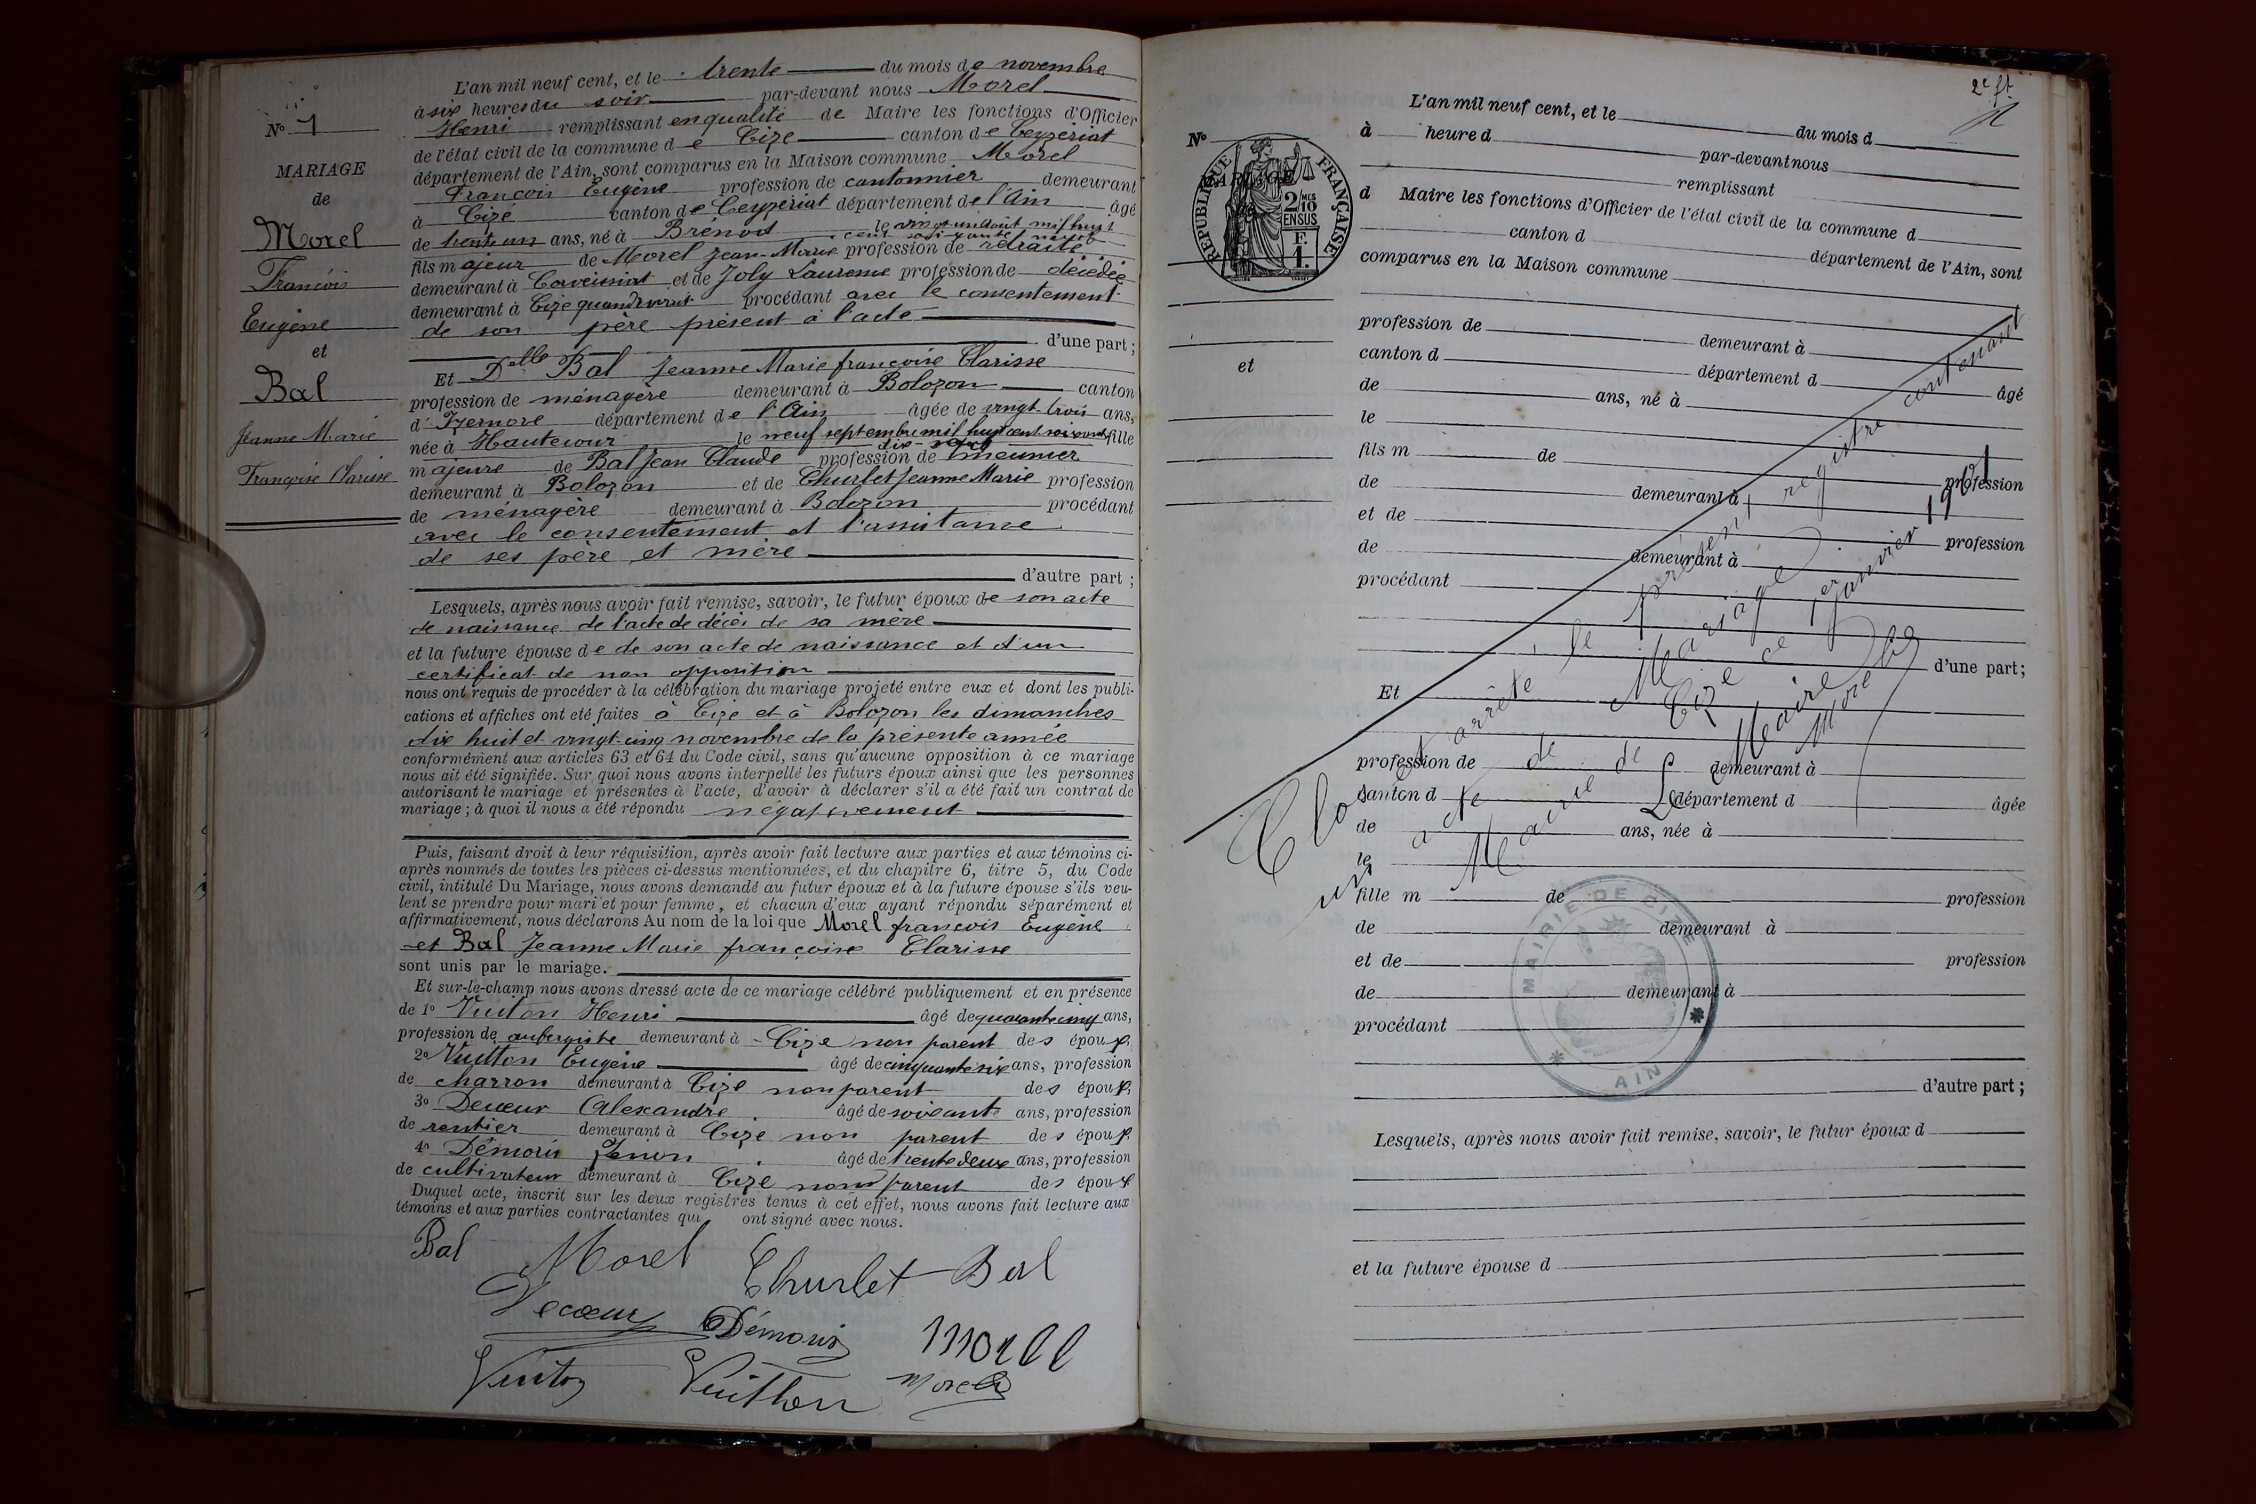 L'an mil neuf cent, et le trente du mois de novembre
à six heures du soir par-devant nous Morel
Henri remplissant en qualité de Maire les fonctions d'Officier
de l'état civil de la commune de Cize canton de Ceyzériat
département de l'Ain, sont comparus en la Maison commune Morel
François Eugène profession de cantonnier demeurant
à Cize canton de Ceyzériat département de l'Ain âgé
de trente un ans, né à Brénod le vingt un août mil huit
cent soixante neuf
fils majeur de Morel Jean-Marie profession de retraité
demeurant à Corveissiat et de Joly Laurence profession de décédée
demeurant à Cize quand vivait procédant avec le consentement
de son père présent à l'acte
d'une part;
Et Delle Bal Jeanne Marie françoise Clarisse
profession de ménagère demeurant à Bolozon canton
d'Izernore département de l'Ain âgée de vingt-trois ans,
née à Hautecour le neuf septembre mil huit cent soixante fille
dix-sept
majeure de Bal Jean Claude profession de meunier
demeurant à Bolozon et de Churlet Jeanne Marie profession
de ménagère demeurant à Bolozon procédant
avec le consentement et l'assistance
de ses père et mère
d'autre part;
Lesquels, après nous avoir fait remise, savoir, le futur époux de son acte
de naissance de l'acte de décès de sa mère
et la future épouse de de son acte de naissance et d'un
certificat de non opposition
nous ont requis de procéder à la célébration du mariage projeté entre eux et dont les publi-
cations et affiches ont été faites à Cize et à Bolozon les dimanches
dix huit et vingt-cinq novembre de la présente année
conformément aux articles 63 et 64 du Code civil, sans qu'aucune opposition à ce mariage
nous ait été signifiée. Sur quoi nous avons interpellé les futurs époux ainsi que les personnes
autorisant le mariage et présentes à l'acte, d'avoir à déclarer s'il a été fait un contrat de
mariage; à quoi il nous a été répondu négativement
Puis, faisant droit à leur réquisition, après avoir fait lecture aux parties et aux témoins ci-
après nommés de toutes les pièces ci-dessus mentionnées, et du chapitre 6, titre 5, du Code
civil, intitulé Du Mariage, nous avons demandé au futur époux et à la future épouse s'ils veu-
lent se prendre pour mari et pour femme, et chacun d'eux ayant répondu séparément et
affirmativement, nous déclarons Au nom de la loi que Morel françois Eugène
et Bal Jeanne Marie françoise Clarisse
sont unis par le mariage.
Et sur-le-champ nous avons dressé acte de ce mariage célébré publiquement et en présence
de 1o Vuiton Henri âgé de quarante cinq ans,
profession de aubergiste demeurant à Cize non parent des époux.
2o Vuitton Eugène âgé de cinquante six ans, profession
de charron demeurant à Cize non parent des époux.
3o Decœur Alexandre âgé de soixante ans, profession
de rentier demeurant à Cize non parent des époux.
4o Démoris Zenon âgé de trente deux ans, profession
de cultivateur demeurant à Cize non parent des époux
Duquel acte, inscrit sur les deux registres tenus à cet effet, nous avons fait lecture aux
témoins et aux parties contractantes qui ont signé avec nous.
Bal Morel Churlet Bal
Decœur Démoris Morell
Vuiton Vuitton Morel
No 1
MARIAGE
de
Morel
François
Eugène
et
Bal
Jeanne Marie
Françoise Clarisse
2e ft
No
MARIAGE
RÉPUBLIQUE FRANÇAISE
2/10 MES
EN SUS
F.
1.
et
L'an mil neuf cent, et le du mois d
à heure d par-devant nous
remplissant
d Maire les fonctions d'Officier de l'état civil de la commune d
canton d département de l'Ain, sont
comparus en la Maison commune
profession de demeurant à
canton d département d âgé
de ans, né à
le
fils m de profession
de demeurant à
et de profession
de demeurant à
procédant
d'une part;
Et
profession de demeurant à
canton d département d âgée
de ans, née à
le
fille m de profession
de demeurant à
et de profession
de demeurant à
procédant
d'autre part;
Lesquels, après nous avoir fait remise, savoir, le futur époux d
et la future épouse d
Clos et arrêté le présent registre contenant
un acte de Mariage
Mairie de Cize ce 1er Janvier 1901
Le Maire
Morel
MAIRIE DE CIZE
AIN